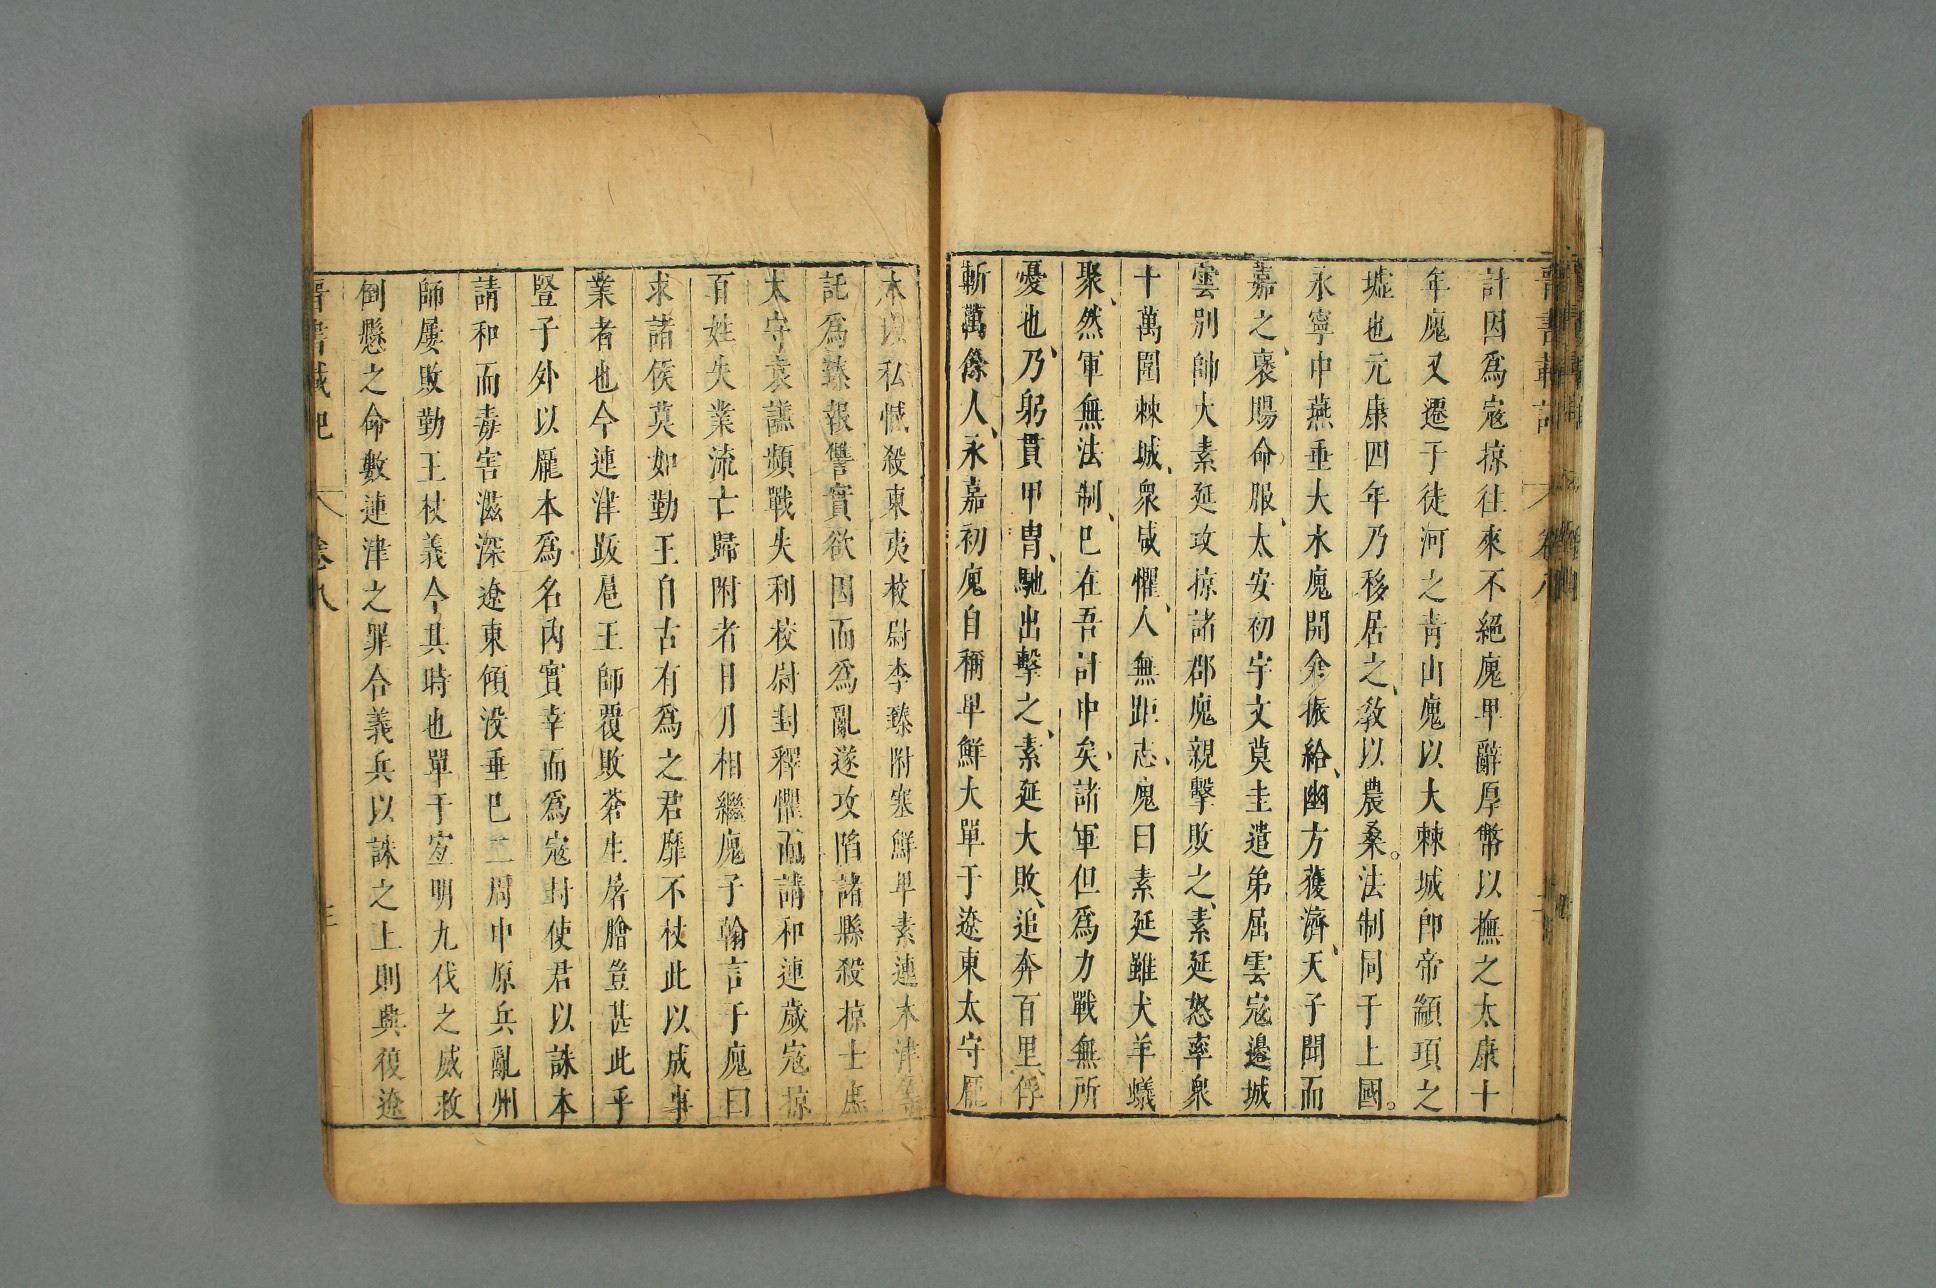 計因爲寇掠往來不絕廆卑辭厚幣以撫之太康十
年廆又遷于徒河之靑山廆以大棘城卽帝顓頊之
墟也元康四年乃移居之、敎以農桑。法制同于上國。
永寧中燕垂大水廆開倉振給、幽方獲濟、天子聞而
嘉之、褒賜命服、太安初宇文莫圭遣弟屈雲寇邊城
雲別帥大素延攻掠諸郡廆親擊敗之、素延怒率衆
十萬圍棘城、衆咸懼、人無距志、廆曰素延雖犬羊蟻
聚、然軍無法制、巳在吾計中矣、諸軍但爲力戰無所
憂也、乃躬貫甲冑、馳出擊之、素延大敗、追奔百里、俘
斬萬餘人、永嘉初廆自稱鮮卑大單于遼東太守龐
本以私憾殺東夷校尉李臻附塞鮮卑素連木津等
託爲臻報讐實欲因而爲亂遂攻陷諸縣殺掠士庶
太守袁謙頻戰失利校尉封釋懼而請和連歲寇掠
百姓失業流亡歸附者日月相繼廆子翰言于廆曰
求諸侯莫如勤王自古有爲之君靡不杖此以成事
業者也今連津跋扈王師覆敗蒼生屠膾豈甚此乎
豎子外以龐本爲名內實幸而爲寇封使君以誅本
請和而毒害滋深遼東傾沒垂巳二周中原兵亂州
師屢敗勤王杖義今其時也單于宜明九伐之威救
倒懸之命數連津之罪合義兵以誅之上則興復遼
晉書載記 卷八